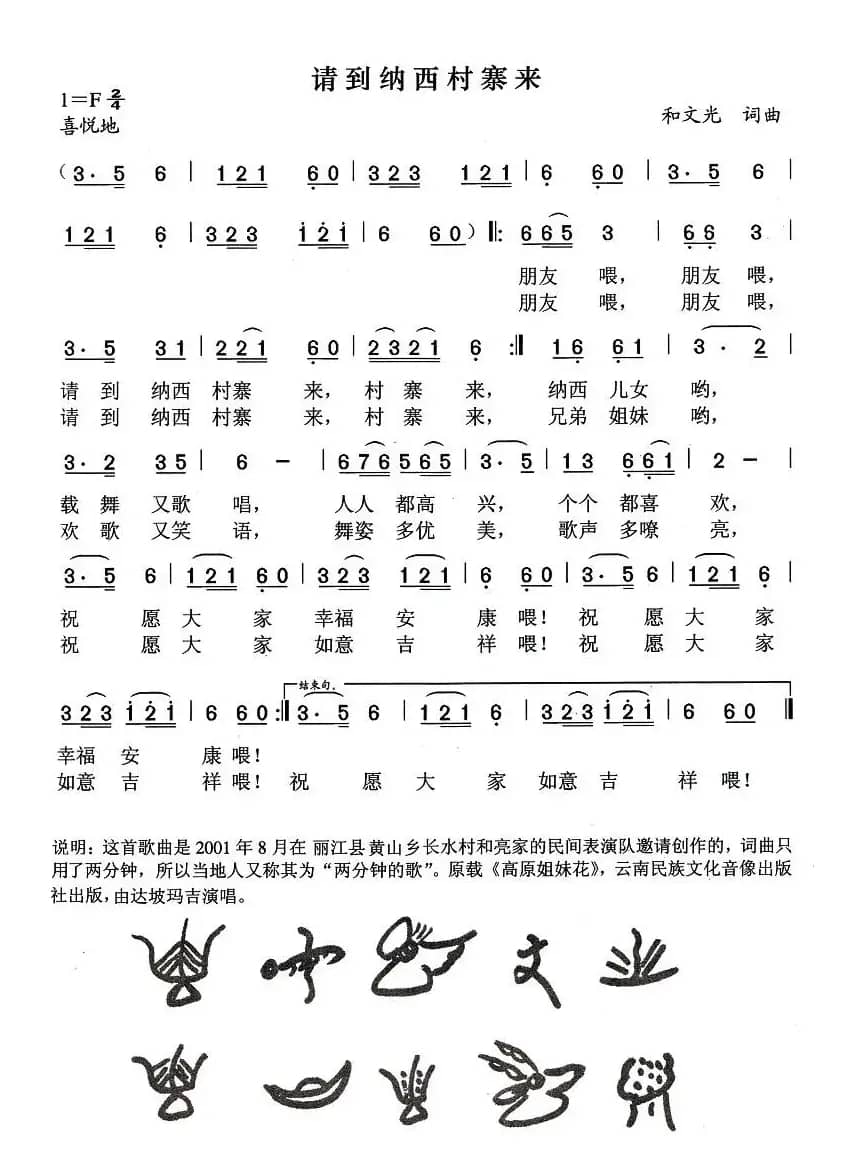 请到纳西村寨来
1=F 2/4
喜悦地
和文光 词曲
(3· 5 6 | 1 2 1 6 0 | 3 2 3 1 2 1 | 6 6 0 | 3· 5 6 |
1 2 1 6 | 3 2 3 1 2 1 | 6 6 0 ) ‖: 6 6 5 3 | 6 6 3 |
朋友 喂, 朋友 喂,
朋友 喂, 朋友 喂,
3· 5 3 1 | 2 2 1 6 0 | 2 3 2 1 6 :‖ 1 6 6 1 | 3· 2 |
请 到 纳西 村寨 来, 村 寨 来, 纳西 儿女 哟,
请 到 纳西 村寨 来, 村 寨 来, 兄弟 姐妹 哟,
3· 2 3 5 | 6 – | 6 7 6 5 6 5 | 3· 5 | 1 3 6 6 1 | 2 – |
载 舞 又歌 唱, 人人 都高 兴, 个个 都喜 欢,
欢 歌 又笑 语, 舞姿 多优 美, 歌声 多嘹 亮,
3· 5 6 | 1 2 1 6 0 | 3 2 3 1 2 1 | 6 6 0 | 3· 5 6 | 1 2 1 6 |
祝 愿 大 家 幸福 安 康 喂! 祝 愿 大 家
祝 愿 大 家 如意 吉 祥 喂! 祝 愿 大 家
结束句.
3 2 3 1 2 1 | 6 6 0 :‖ 3· 5 6 | 1 2 1 6 | 3 2 3 1 2 1 | 6 6 0 ‖
幸福 安 康 喂!
如意 吉 祥 喂! 祝 愿 大 家 如意 吉 祥 喂!
说明：这首歌曲是 2001 年 8 月在 丽江县黄山乡长水村和亮家的民间表演队邀请创作的，词曲只
用了两分钟，所以当地人又称其为“两分钟的歌”。原载《高原姐妹花》，云南民族文化音像出版
社出版，由达坡玛吉演唱。